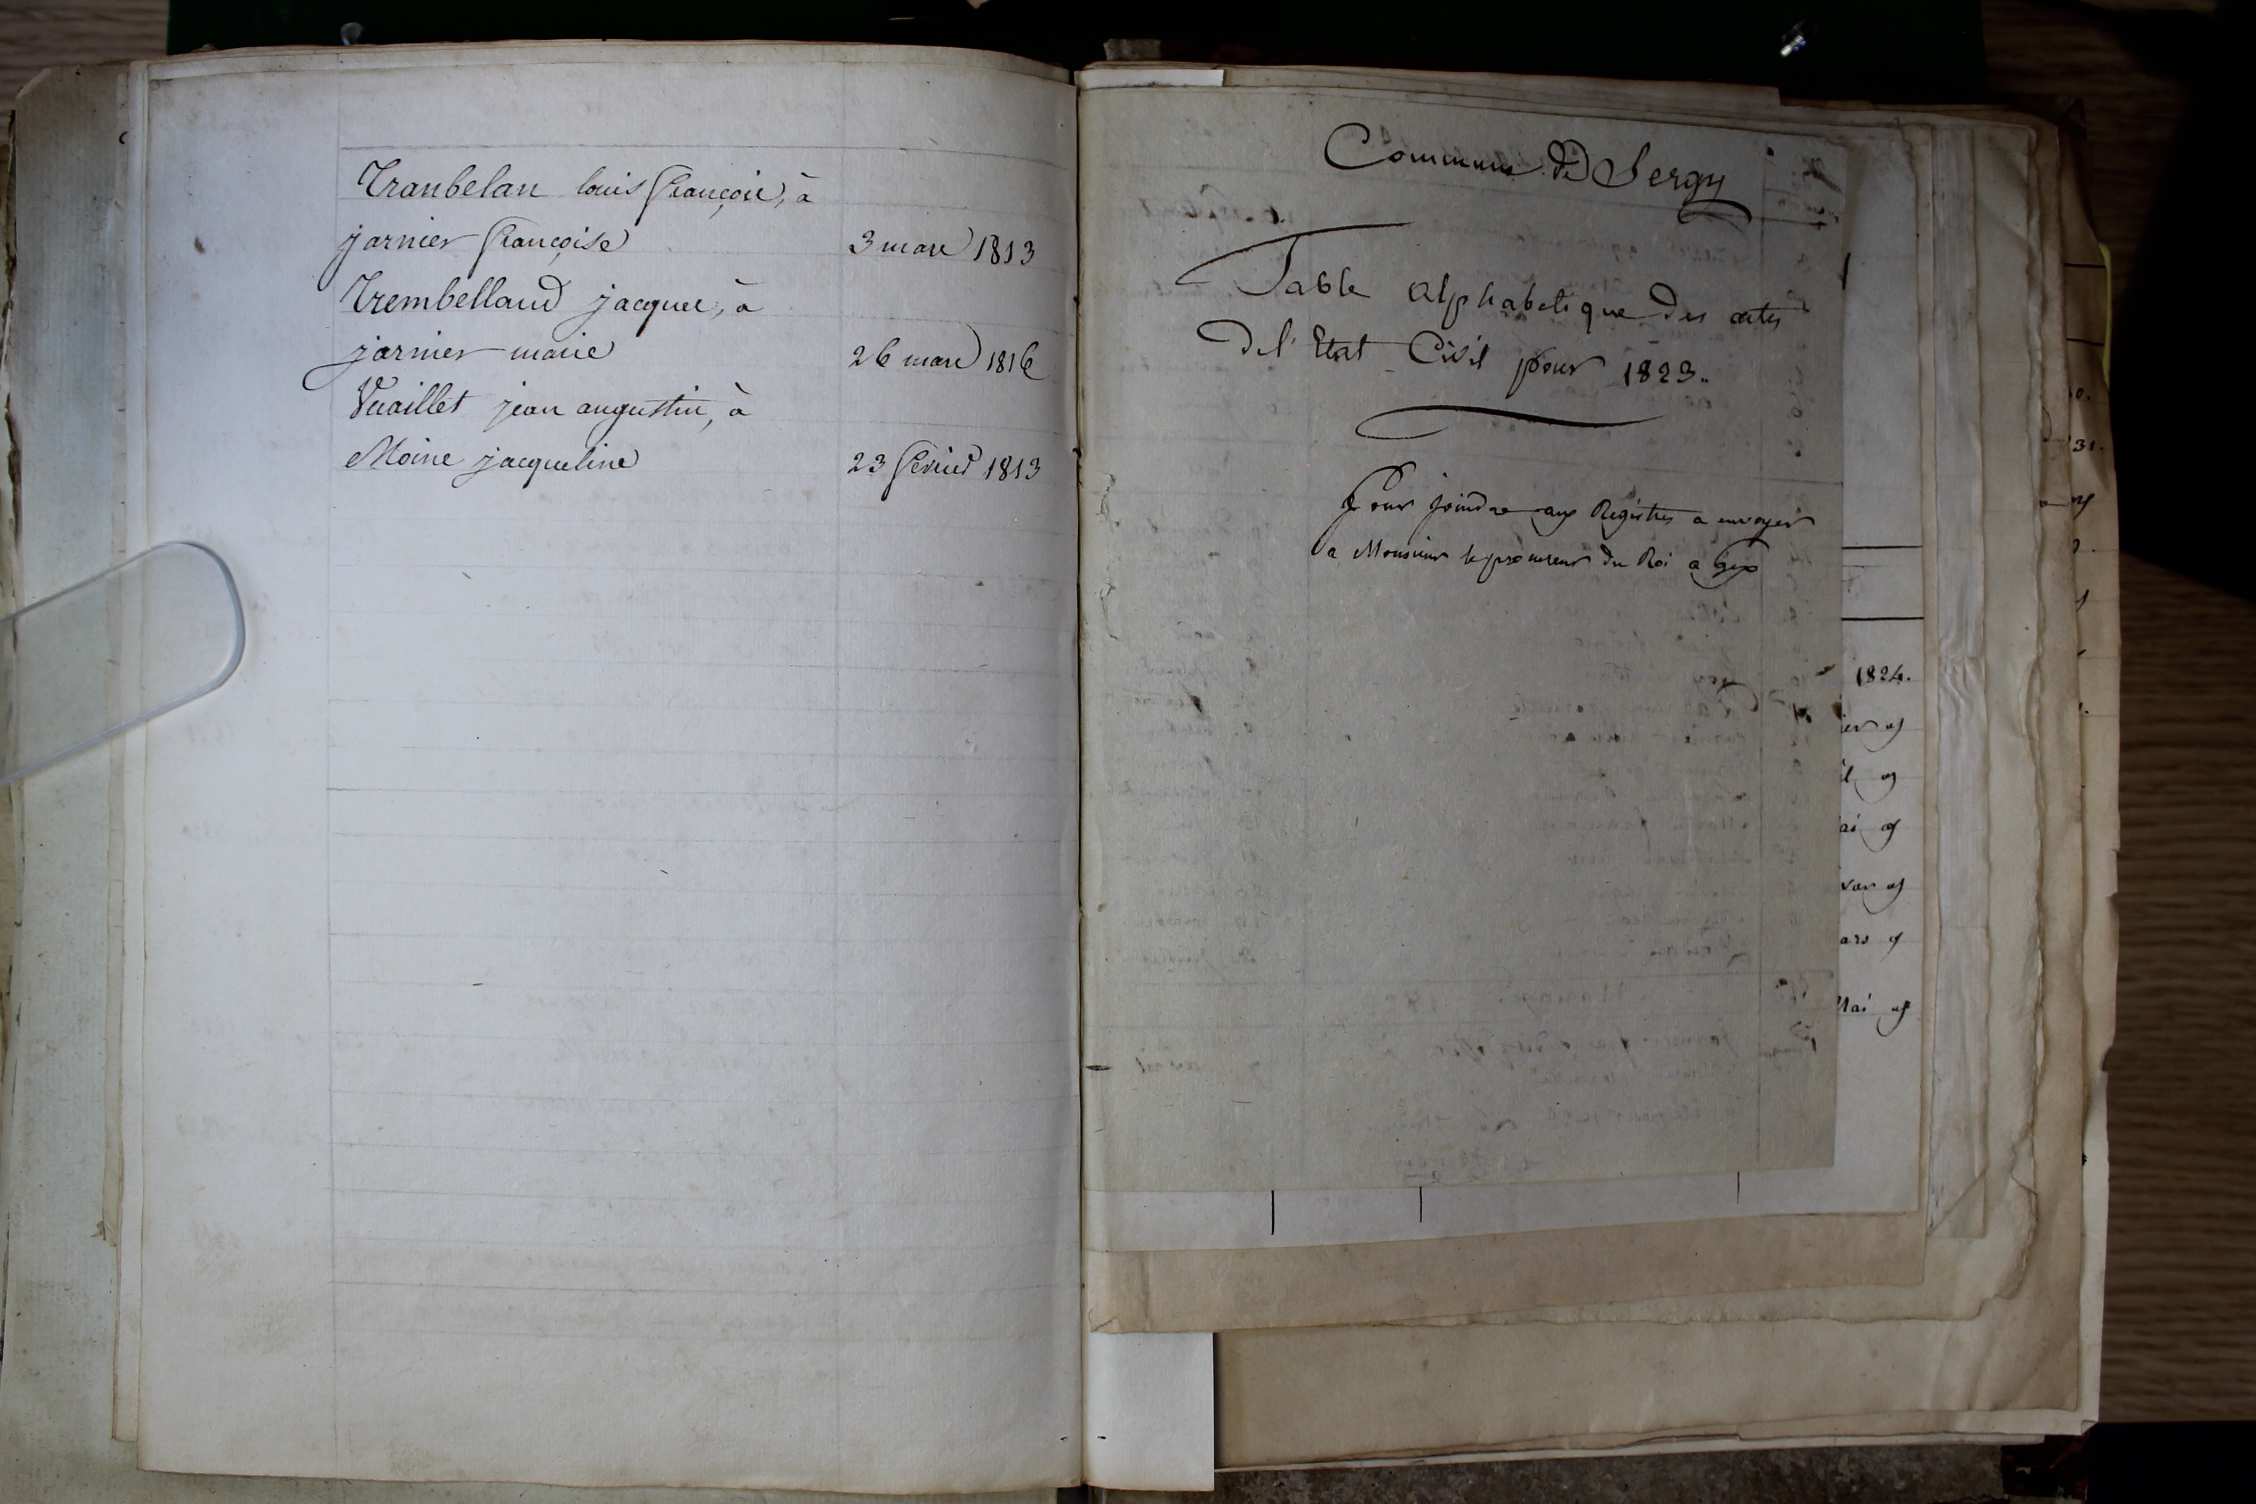 Tranbelan louis françois, à
jarnier françoise 3 mars 1813
Trembelland jacques, à
jarnier marie 26 mars 1816
Vuaillet jean augustin, à
Moine jacqueline 23 février 1813
Commune de Sergy
Table alphabetique des actes
de l'Etat Civil pour 1823.
Pour joindre aux Registres a envoyer
a Monsieur le procureur du Roi a Gex
1824.